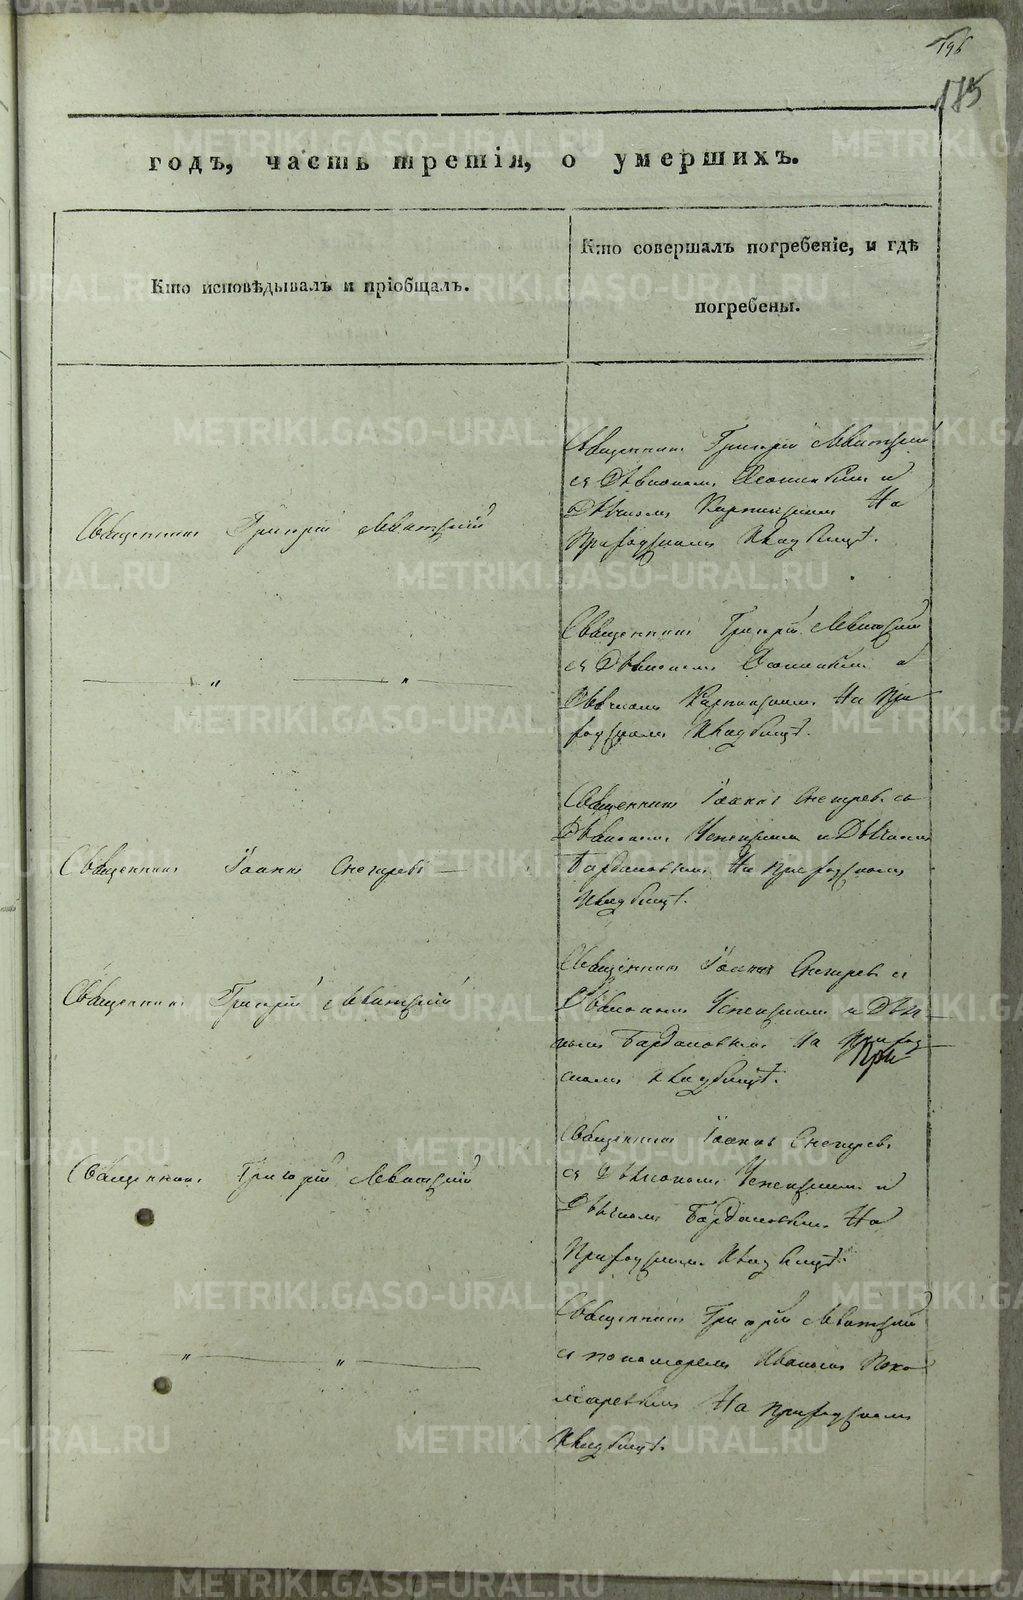 196
185
годъ, часть третія, о умершихъ.
Кто исповѣдывалъ и пріобщалъ.
Кто совершалъ погребеніе, и гдѣ
погребены.
Священникъ Григорій Левитскій
Священникъ Григорій Левитскій
съ Діакономъ и
Дьячкомъ На
Приходскомъ Кладбищѣ.
— „ — „ —
Священникъ Григорій Левитскій
съ Діакономъ и
Дьячкомъ На При
ходскомъ Кладбищѣ.
Священникъ Іоаннъ Снегирев
Священникъ Іоаннъ Снегирев съ
Діакономъ Успенскимъ и Дьячкомъ
Бардановымъ На приходскомъ
Кладбищѣ.
Священникъ Григорій Левитскій
Священникъ Іоаннъ Снегирев съ
Діакономъ Успенскимъ и Дьяч
комъ Бардановымъ На Приход
При
скомъ кладбищѣ.
Священникъ Григорій Левитскій
Священникъ Іоаннъ Снегирев
съ Діакономъ Успенскимъ и
Дьячкомъ Бардановымъ На
Приходскомъ Кладбищѣ.
— „ — „ —
Священникъ Григорій Левитскій
съ пономаремъ Иваномъ Поно
маревымъ На приходскомъ
Кладбищѣ.
METRIKI.GASO-URAL.RU